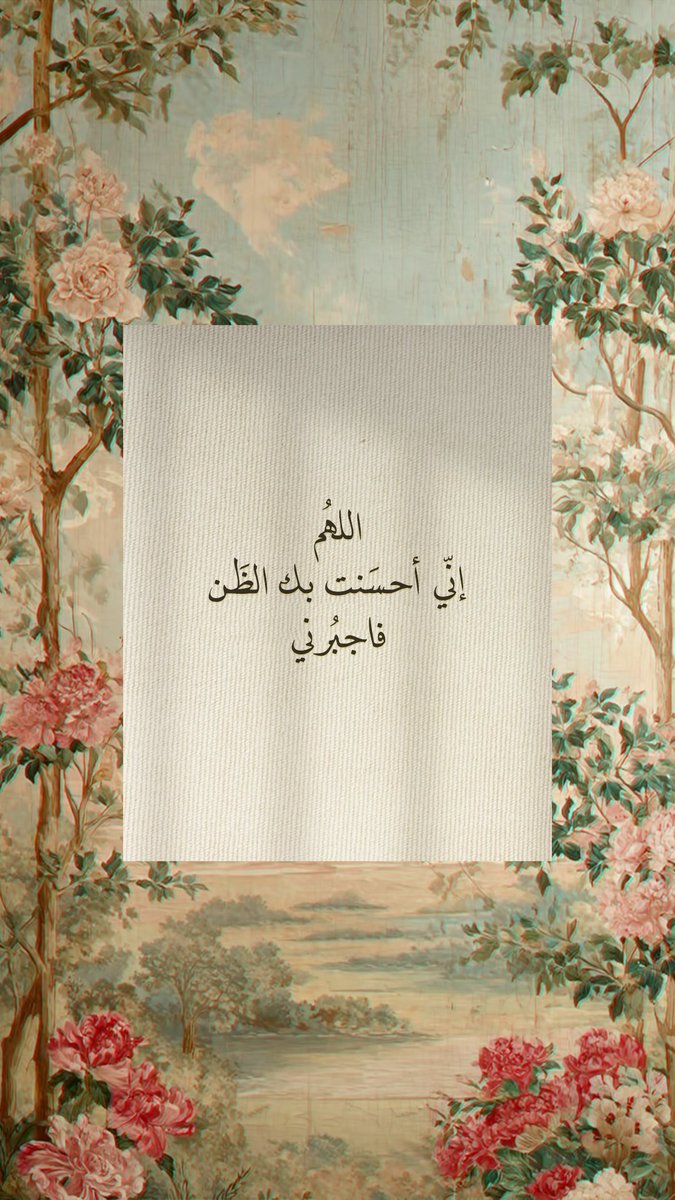 اللهُم
إنّي أحسَنت بك الظَن
فاجبُرني